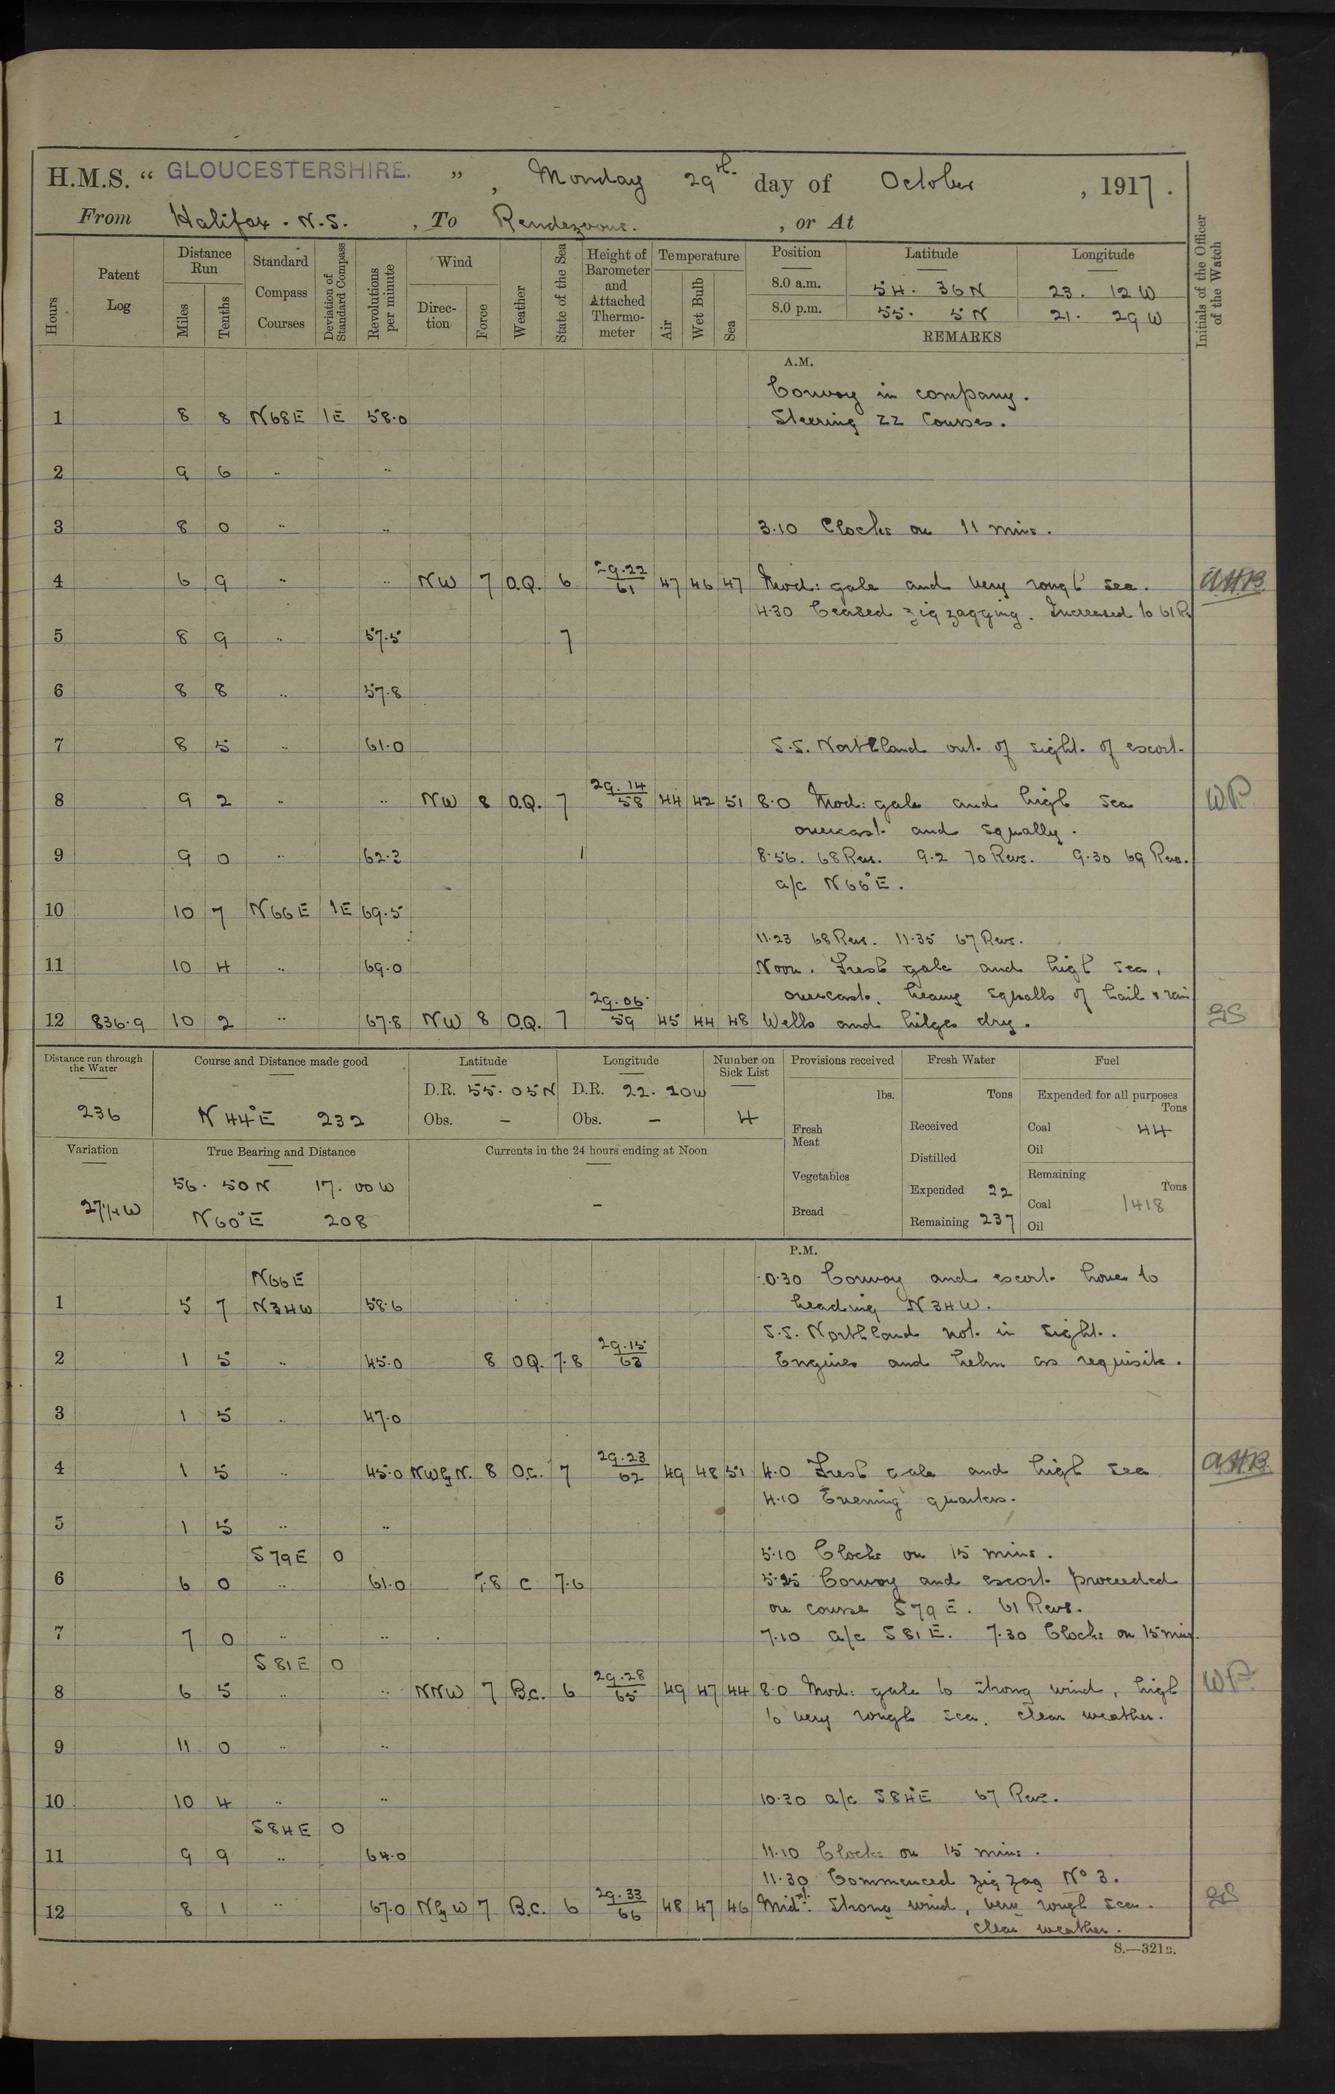 H.M.S. “ GLOUCESTERSHIRE. ” , Monday 29th. day of October , 1917 .
From Halifax . N.S. , To Rendezvous. , or At
Hours Patent Log Distance Run Miles Tenths Standard Compass Courses Deviation of Standard Compass Revolutions per minute Wind Direction Force Weather State of the Sea Height of Barometer and Attached Thermometer Temperature Air Wet Bulb Sea Position Latitude Longitude Initials of the Officer of the Watch
8.0 a.m. 54. 36N 23. 12W
8.0 p.m. 55. 5N 21. 29W
REMARKS
A.M.
Convoy in company.
1 8 8 N68E 1E 58.0 Steering ZZ Courses.
2 9 6 .. ..
3 8 0 .. .. 3.10 Clocks on 11 mins.
4 6 9 .. .. NW 7 O.Q. 6 29.22/61 47 46 47 Mod: gale and very rough sea. AHB
4.30 Ceased zig zagging. Increased to 61 R
5 8 9 .. 57.5 7
6 8 8 .. 57.8
7 8 5 .. 61.0 S.S. Northland out of sight of escort.
8 9 2 .. .. NW 8 O.Q. 7 29.14/58 44 42 51 8.0 Mod: gale and high sea WP.
overcast and squally.
9 9 0 .. 62.3 8.56. 68 Revs. 9.2 70 Revs. 9.30 69 Revs.
a/c N66°E.
10 10 7 N66E 1E 69.5
11.23 68 Revs. 11.35 67 Revs.
11 10 4 .. 69.0 Noon. Fresh gale and high sea,
overcast, heavy squalls of hail & rain
12 836.9 10 2 .. 67.8 NW 8 O.Q. 7 29.06/59 45 44 48 Wells and bilges dry.
Distance run through the Water Course and Distance made good Latitude Longitude Number on Sick List Provisions received Fresh Water Fuel
236 N 44°E 232 D.R. 55.05N D.R. 22.20W 4 lbs. Tons Expended for all purposes Tons
Obs. – Obs. – Fresh Meat Received Coal 44
Distilled Oil
Variation True Bearing and Distance Currents in the 24 hours ending at Noon Vegetables Expended 22 Remaining Tons
27¼W 56. 50N 17. 00W – Bread Remaining 237 Coal 1418
N60°E 208 Oil
P.M.
N66E 0.30 Convoy and escort hove to
1 5 7 N34W 58.6 heading N34W.
S.S. Northland not in sight.
2 1 5 .. 45.0 8 OQ. 7.8 29.15/63 Engines and helm as requisite.
3 1 5 .. 47.0
4 1 5 .. 45.0 NWbyN. 8 O.C. 7 29.23/62 49 48 51 4.0 Fresh gale and high sea AHB
4.10 Evening quarters.
5 1 5 .. ..
S79E 0 5.10 Clocks on 15 mins.
6 6 0 .. 61.0 7.8 C 7.6 5.25 Convoy and escort proceeded
on course S79E. 61 Revs.
7 7 0 .. .. 7.10 a/c S81E. 7.30 Clocks on 15 mins.
S81E 0
8 6 5 .. .. NNW 7 B.C. 6 29.28/65 49 47 44 8.0 Mod: gale to strong wind, high WP.
to very rough sea. clear weather.
9 11 0 .. ..
10 10 4 .. .. 10.30 a/c S84°E 67 Revs.
S84E 0
11 9 9 .. 64.0 11.10 Clocks on 15 mins.
11.30 Commenced zig zag No 3.
12 8 1 .. 67.0 NbyW 7 B.C. 6 29.33/66 48 47 46 Midt. Strong wind, very rough sea.
clear weather.
S.—321B.